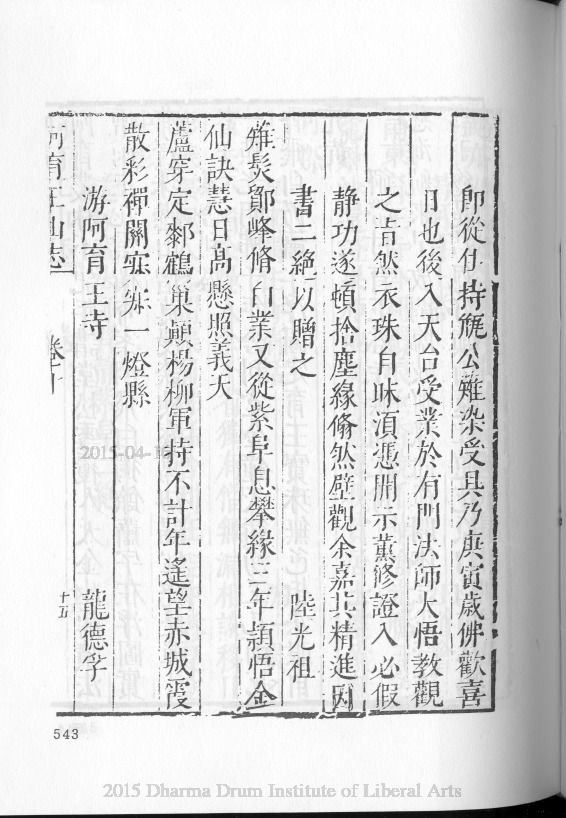 卽從仕持觹公薙染受具乃庚寅歲佛歡喜
日也後入天台受業於有門法師大悟教觀
之旨然衣珠自昧湏憑開示薰修證入必假
靜功遂頓捨塵緣翛然壁觀余嘉其精進因
書二絕以贈之 陸光祖
薙髮鄮峰脩白業又從紫阜息攀緣三年頴悟金
仙訣慧日高懸照義天
蘆穿定䣛鶴巢顛楊柳軍持不計年遙望赤城霞
散彩禪關寂一燈縣
游阿育王寺 龍德孚
阿育王山志 卷十 十五
543
2015-04-1
2015 Dharma Drum Institute of Liberal Arts